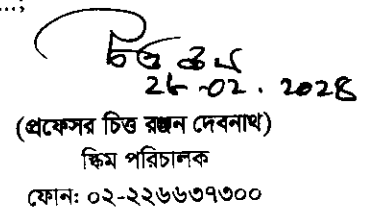 চিত্ত রঞ্জন
26-02.2028
(প্রফেসর চিত্ত রঞ্জন দেবনাথ)
স্কিম পরিচালক
ফোন: ০২-২২৬৬৩৭৩০০